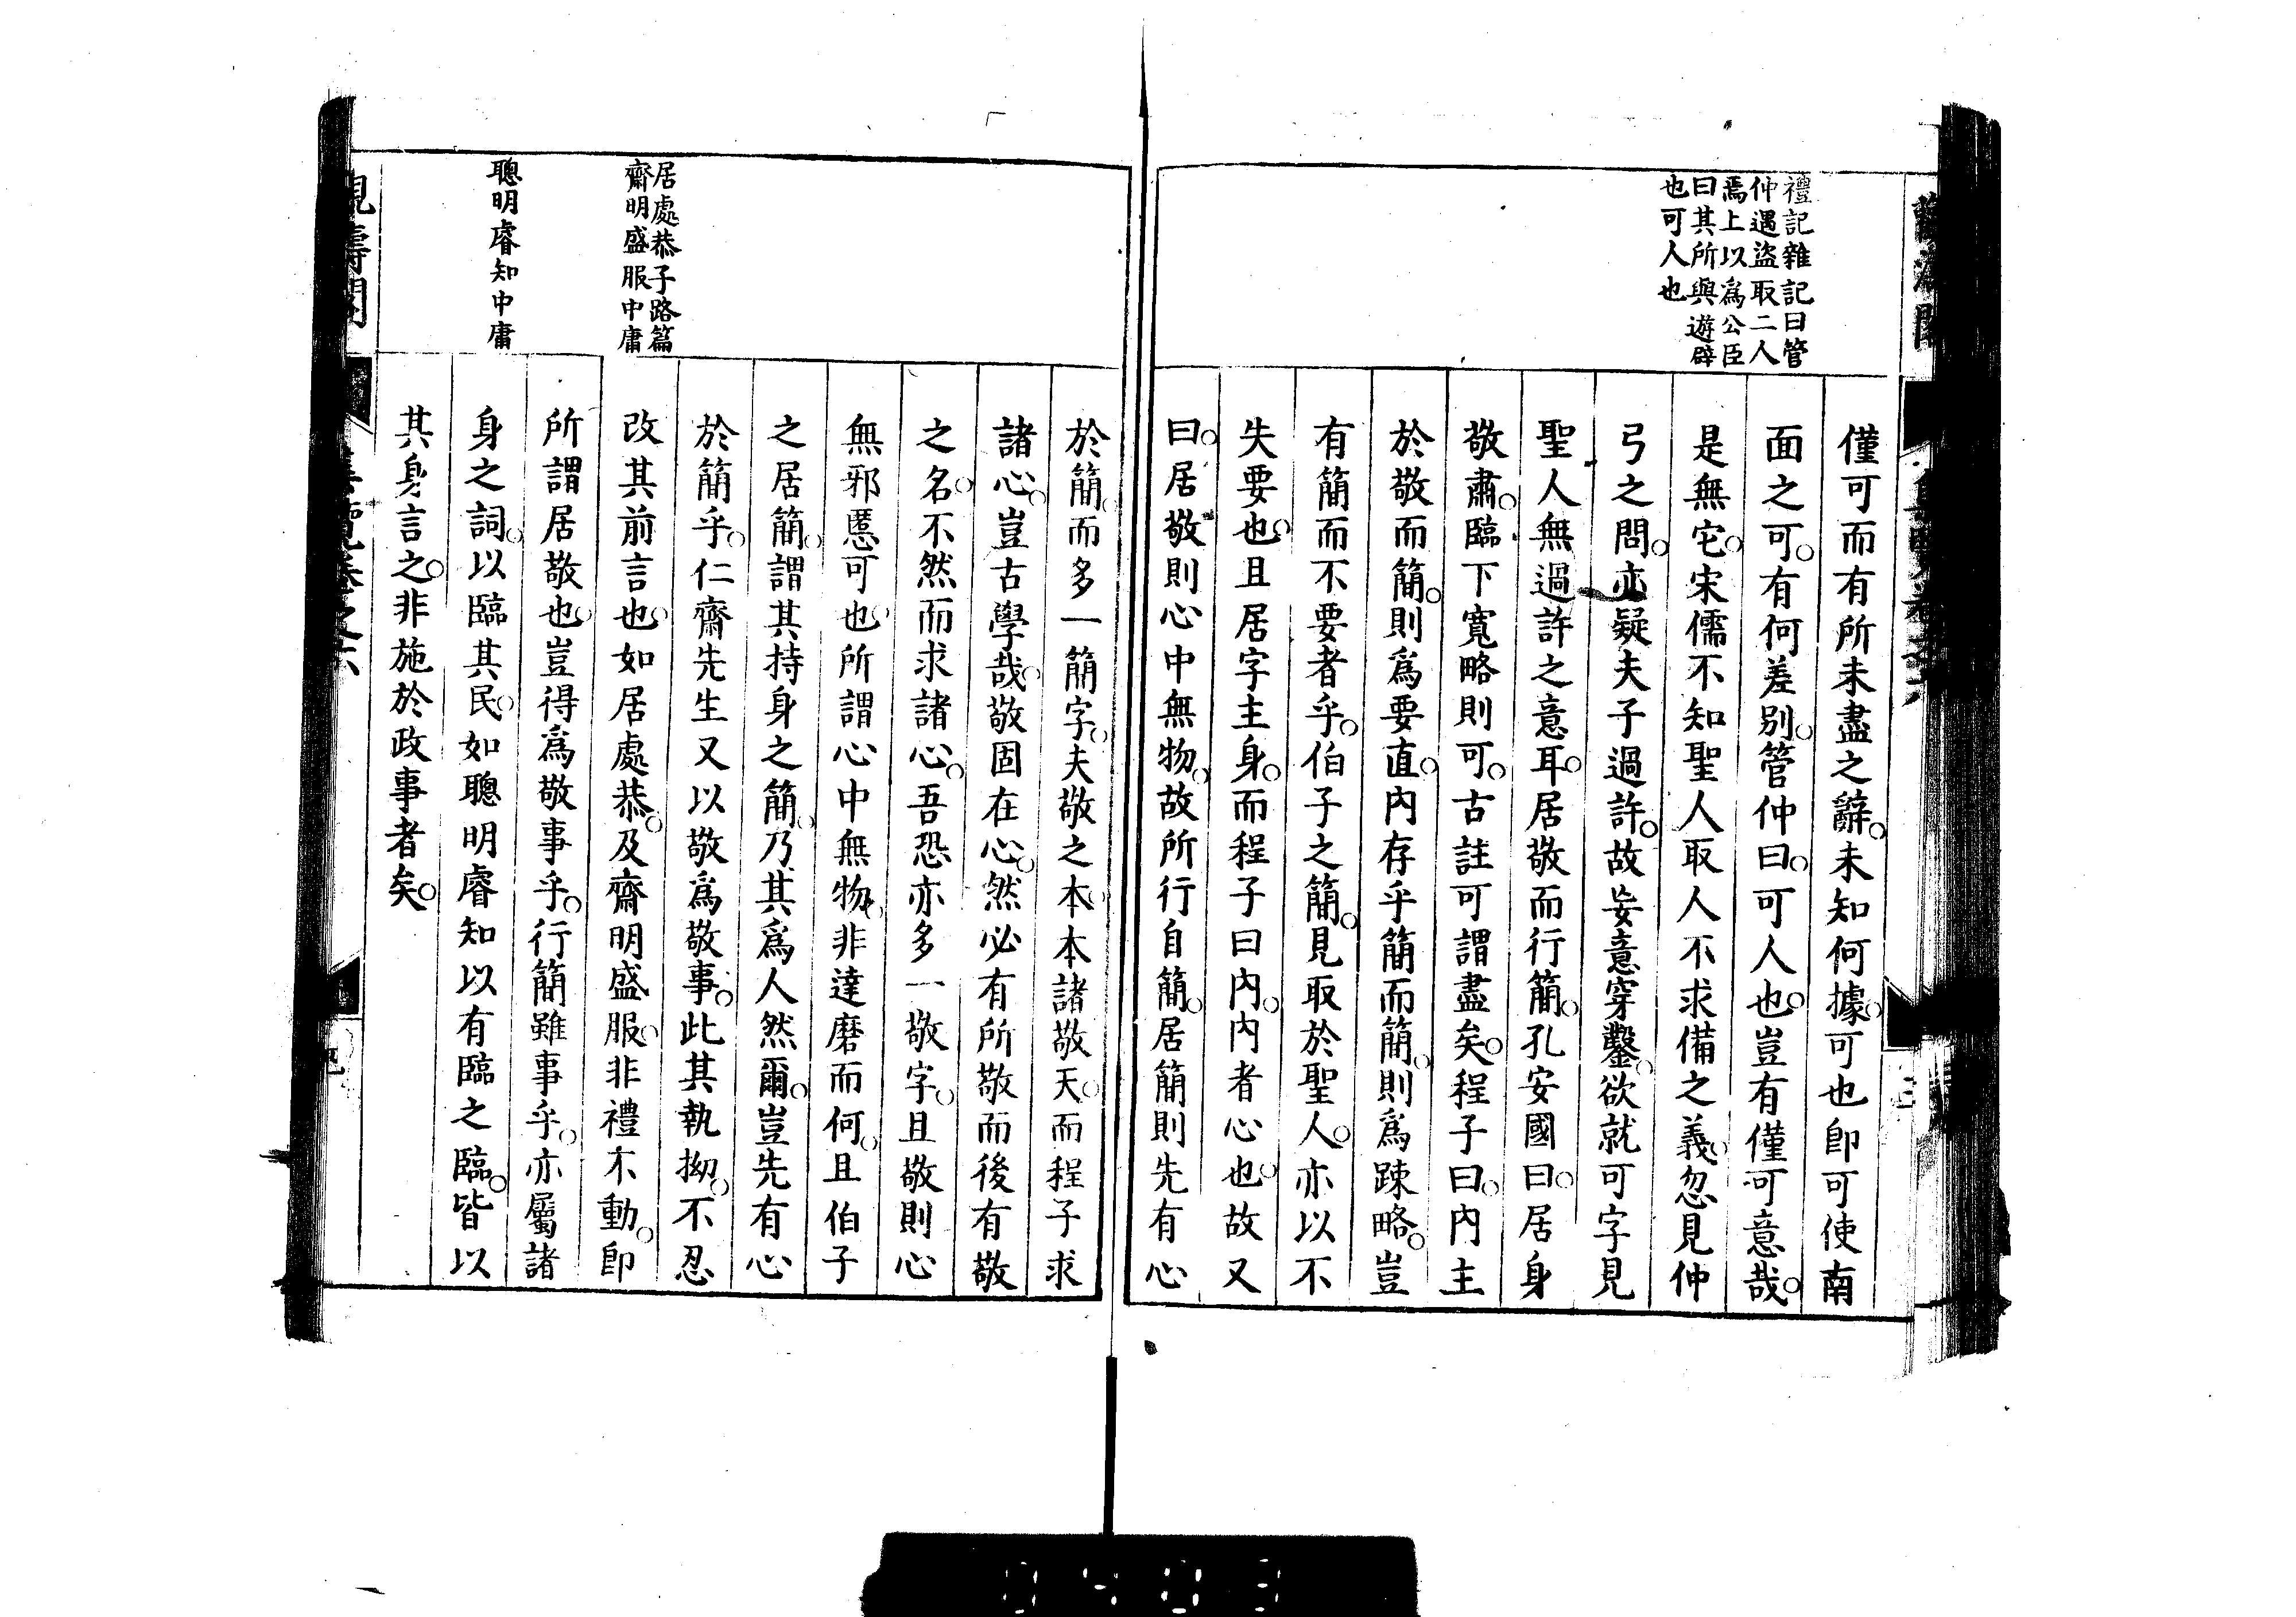 禮記雜記曰管
仲遇盜取二人
焉上以爲公臣
曰其所與遊辟
也可人也
僅可而有所未盡之辭。未知何據。可也卽可使南
面之可。有何差別。管仲曰。可人也。豈有僅可意哉。
是無宅。宋儒不知聖人取人不求備之義。忽見仲
弓之問。亦疑夫子過許。故妄意穿鑿。欲就可字見
聖人無過許之意耳。居敬而行簡。孔安國曰。居身
敬肅。臨下寬略則可。古註可謂盡矣。程子曰。內主
於敬而簡。則爲要直。內存乎簡而簡。則爲踈略。豈
有簡而不要者乎。伯子之簡。見取於聖人。亦以不
失要也。且居字主身。而程子曰內。內者心也。故又
曰。居敬則心中無物。故所行自簡。居簡則先有心
於簡。而多一簡字。夫敬之本。本諸敬天。而程子求
諸心。豈古學哉。敬固在心。然必有所敬而後有敬
之名。不然而求諸心。吾恐亦多一敬字。且敬則心
無邪慝可也。所謂心中無物。非達磨而何。且伯子
之居簡。謂其持身之簡。乃其爲人然爾。豈先有心
於簡乎。仁齋先生又以敬爲敬事。此其執拗。不忍
改其前言也。如居處恭。及齋明盛服。非禮不動。卽
所謂居敬也。豈得爲敬事乎。行簡雖事乎。亦屬諸
身之詞。以臨其民。如聰明睿知以有臨之臨。皆以
其身言之。非施於政事者矣。
居處恭子路篇
齋明盛服中庸
聰明睿知中庸